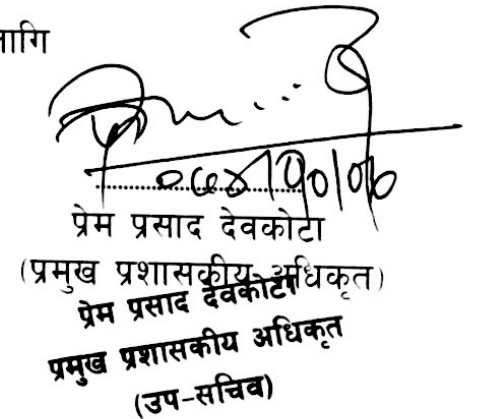 ागि
प्रेम प्रसाद देवकोटा
(प्रमुख प्रशासकीय अधिकृत)
प्रेम प्रसाद देवकोटा
प्रमुख प्रशासकीय अधिकृत
(उप-सचिव)